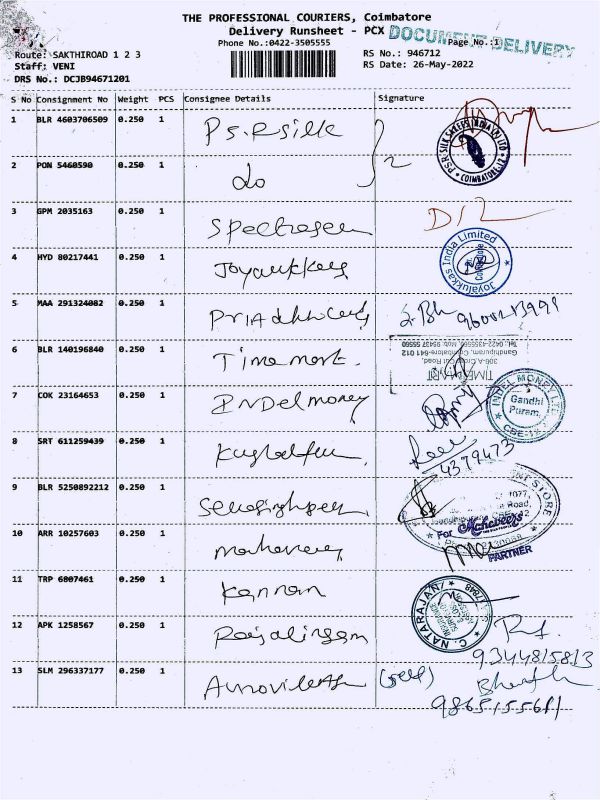 THE PROFESSIONAL COURIERS, Coimbatore
Delivery Runsheet - PCX
DOCUMENT DELIVERY
Phone No.:0422-3505555
Page No.:1
Route: SAKTHIROAD 1 2 3
RS No.: 946712
Staff: VENI
RS Date: 26-May-2022
DRS No.: DCJB94671201
S No Consignment No Weight PCS Consignee Details Signature
1 BLR 4603706509 0.250 1 P S.R silk
2 PON 5460590 0.250 1 do 2
P.S.R SILK SAREES INDIA (P) LTD COIMBATORE
3 GPM 2035163 0.250 1
4 HYD 80217441 0.250 1 Joyalukkas
Joyalukkas India Limited
Coimbatore
5 MAA 291324082 0.250 1
6 BLR 140196840 0.250 1 Timemart.
TIMEMART
306-A, Cross Cut Road,
Gandhipuram, Coimbatore-641 012
Tel: 0422-4355560, Mob. 95437 55560
7 COK 23164653 0.250 1 Indelmoney
INDEL MONEY LTD
Gandhi
Puram,
CBE-12
8 SRT 611259439 0.250 1
4379473
9 BLR 5250892212 0.250 1
10 ARR 10257603 0.250 1
For Mahaveer's
PARTNER
11 TRP 6807461 0.250 1 Kannan
C. NATARAJAN
12 APK 1258567 0.250 1 Rajalingam
9344815813
13 SLM 296337177 0.250 1 (self)
Bharath